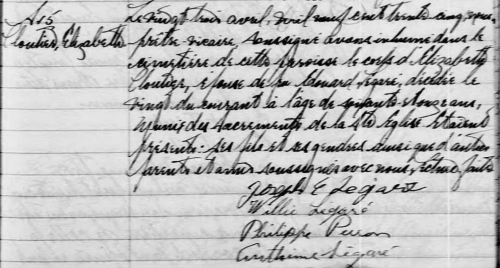 A 5
Cloutier, Elizabeth
Le vingt trois avril, mil neuf cent trente cinq, nous,
prêtre vicaire, soussigné avons inhumé dans le
cimetière de cette paroisse le corps d'Elizabeth
Cloutier, épouse de feu Edouard Légaré, décédée le
vingt du courant à l'âge de soixante et onze ans,
munie des sacrements de la Ste Eglise. Etaient
présents: ses fils et ses gendres ainsi que d'autres
parents et amis soussignés avec nous, lecture faite
Joseph E Legaré
Willie Légaré
Philippe Perron
Légaré